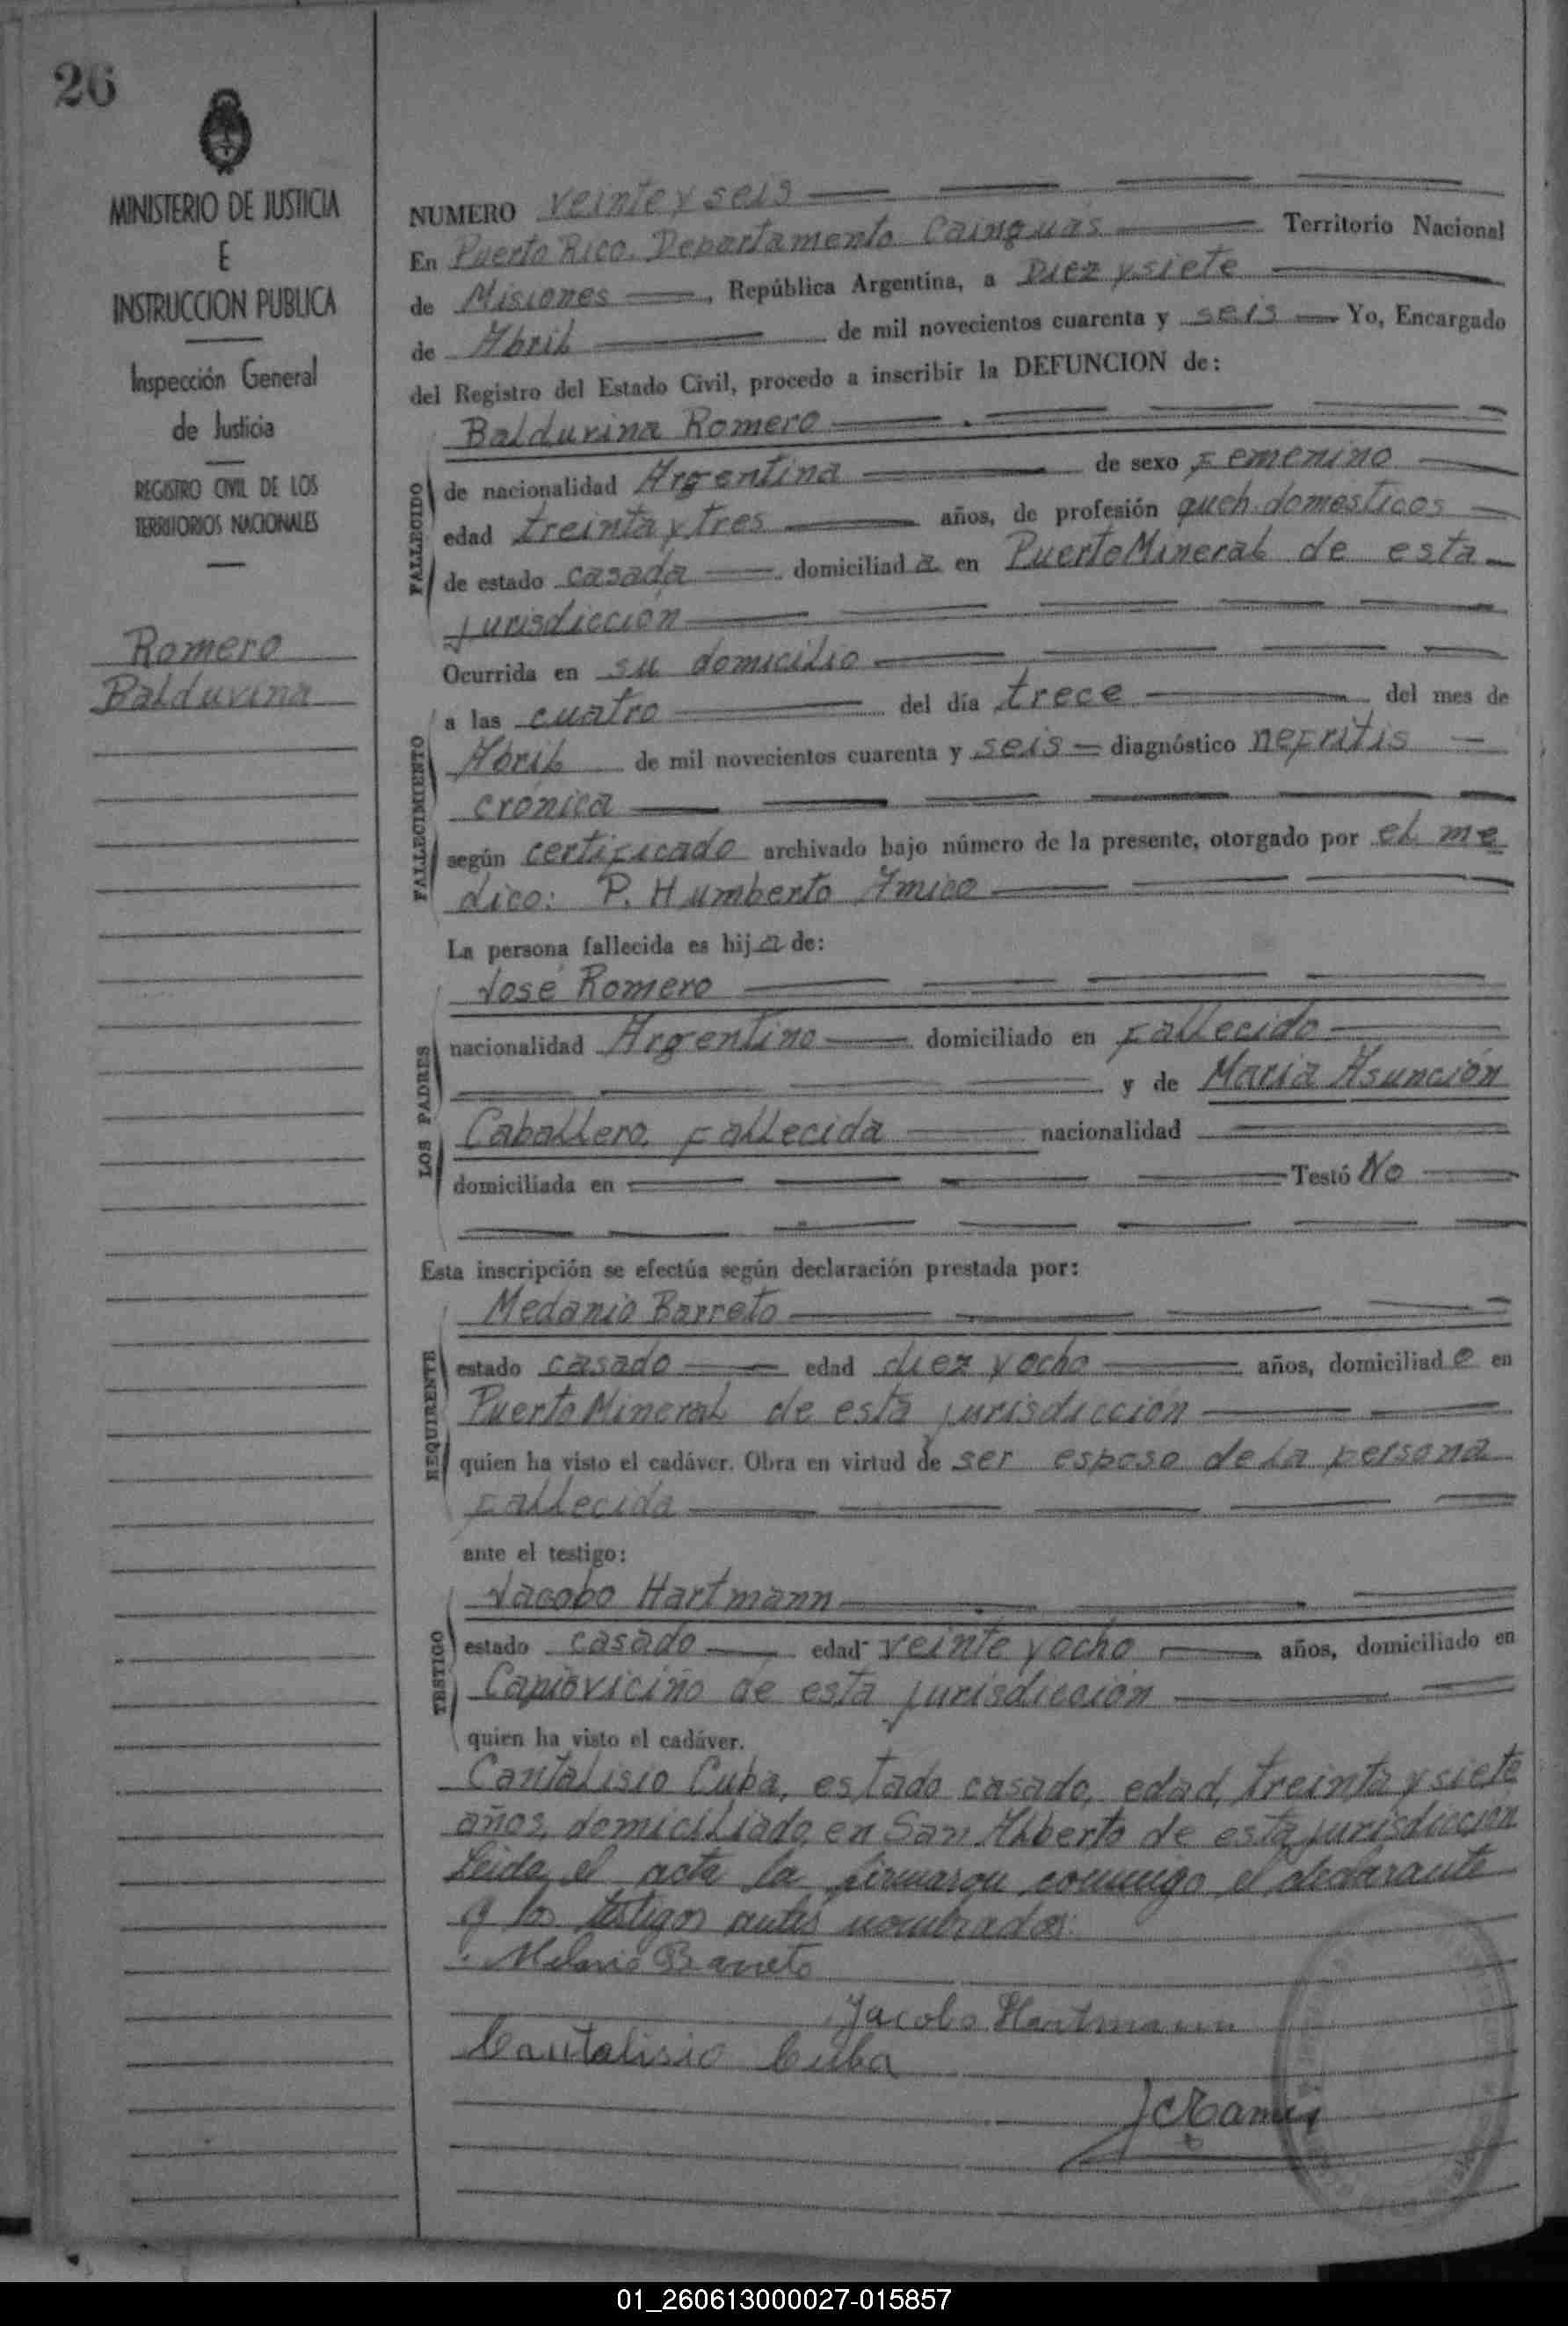 26
MINISTERIO DE JUSTICIA
E
INSTRUCCION PUBLICA
Inspección General
de Justicia
REGISTRO CIVIL DE LOS
TERRITORIOS NACIONALES
Romero
Balduvina
NUMERO veinte y seis
En Puerto Rico. Departamento Cainguás Territorio Nacional
de Misiones, República Argentina, a Diez y siete
de Abril de mil novecientos cuarenta y seis Yo, Encargado
del Registro del Estado Civil, procedo a inscribir la DEFUNCION de:
FALLECIDO
Balduvina Romero
de nacionalidad Argentina de sexo Femenino
edad treinta y tres años, de profesión queh. domesticos
de estado casada domiciliada en Puerto Mineral de esta
jurisdicción
FALLECIMIENTO
Ocurrida en su domicilio
a las cuatro del día trece del mes de
Abril de mil novecientos cuarenta y seis diagnóstico nefritis
crónica
según certificado archivado bajo número de la presente, otorgado por el me
dico: P. Humberto Amico
La persona fallecida es hija de:
LOS PADRES
José Romero
nacionalidad Argentino domiciliado en fallecido
y de Maria Asunción
Caballero, fallecida nacionalidad
domiciliada en Testó No
Esta inscripción se efectúa según declaración prestada por:
REQUIRENTE
Medanio Barreto
estado casado edad diez y ocho años, domiciliado en
Puerto Mineral de esta jurisdicción
quien ha visto el cadáver. Obra en virtud de ser esposo de la persona
fallecida
ante el testigo:
TESTIGO
Jacobo Hartmann
estado casado edad veinte y ocho años, domiciliado en
Capioviciño de esta jurisdicción
quien ha visto el cadáver.
Cantalisio Cuba, estado casado, edad, treinta y siete
años, domiciliado en San Alberto de esta jurisdicción
Leida el acta la firmaron conmigo el declarante
y los testigos antes nombrados:
Melanio Barreto
Jacobo Hartmann
Cantalisio Cuba
01_260613000027-015857